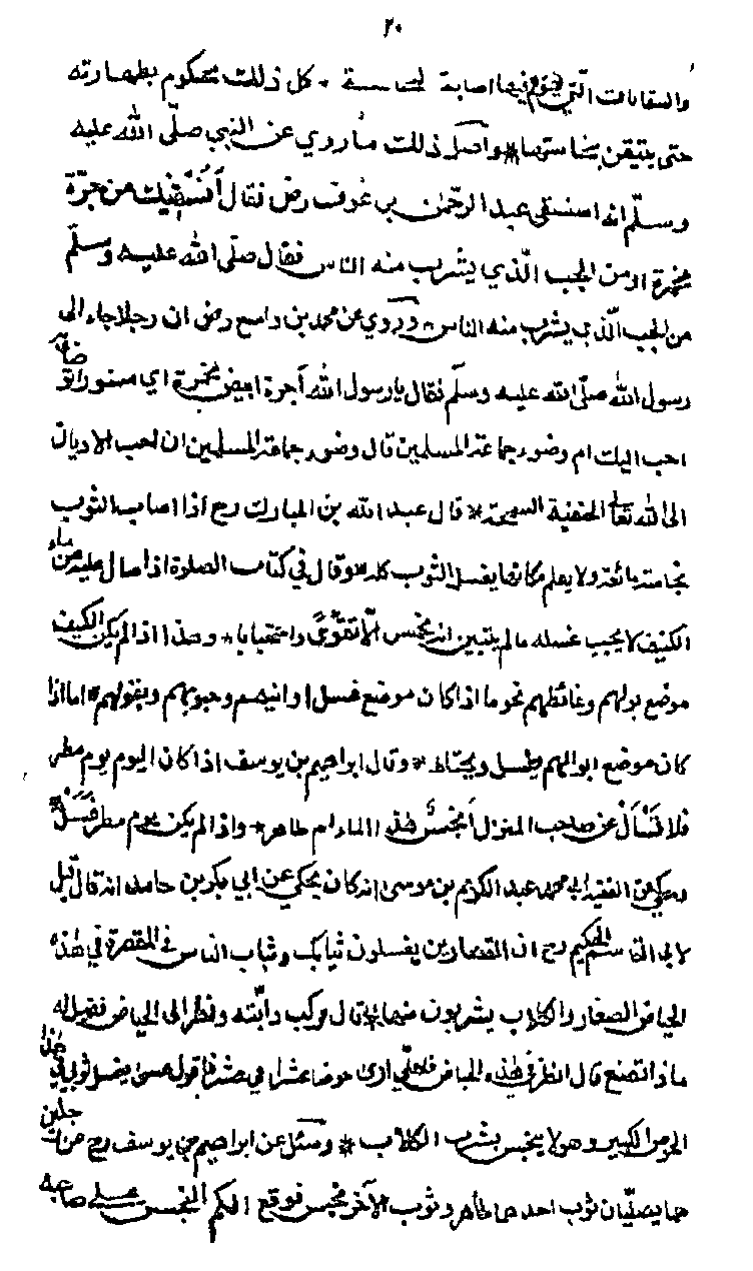 ٢٠
والسقايات التي يتوهم فيها اصابة نجاسة * كل ذلك محكوم بطهارته
حتى يتيقن بنجاستها * واصل ذلك ما روي عن النبي صلّى الله عليه
وسلّم انه استسقى عبد الرحمن بن عوف رض فقال أنسقيك من جرّة
مخمرة او من الجب الّذي يشرب منه الناس فقال صلّى الله عليه وسلّم
من الجب الّذي يشرب منه الناس * وروي عن محمد بن واسع رض ان رجلا جاء الى
رسول الله صلّى الله عليه وسلّم فقال يا رسول الله أجرة ابيض مخمرة اي مستور
احب اليك ام وضوء جماعة المسلمين قال وضوء جماعة المسلمين ان احب الاديان
الى الله تعالى الحنفية السمحة * قال عبد الله بن المبارك رح اذا اصاب الثوب
نجاسة مائعة ولا يعلم مكانها يغسل الثوب كله * وقال في كتاب الصلوة اذا سال عليه من ماء
الكنيف لا يجب غسله ما لم يتبين انه نجس الّا تقوّى واحتياطا * وهذا اذا لم يكن الكنيف
موضع بولهم وغائطهم نحو ما اذا كان موضع غسل اوانيهم وحبوبهم وبقولهم * اما اذا
كان موضع ابوالهم يغسل ويحتاط * وقال ابراهيم بن يوسف اذا كان اليوم يوم مطر
فلا تسأل عن صاحب المنزل أنجس هذا الماء ام طاهر * واذا لم يكن يوم مطر فسل *
وحكي عن الفقيه ابي محمد عبد الكريم بن موسى انه كان يحكي عن ابي بكر بن حامد انه قال قيل
لابي القاسم الحكيم رح ان القصارين يغسلون ثيابك وثياب الناس في المقصرة في هذه
الحياض الصغار والكلاب يشربون منها * قال فركب دابّته ونظر الى الحياض فقيل له
ماذا تصنع قال انظر في هذه الحياض فلعلّي ارى حوضا عشرا في عشر فاقول عسى يغسل ثوبي في هذا
الحوض الكبير وهو لا ينجس بشرب الكلاب * وسئل عن ابراهيم بن يوسف رح عن رجلين
هما يصلّيان ثوب احدهما طاهر وثوب الآخر نجس فوقع الكم النجس على صاحبه